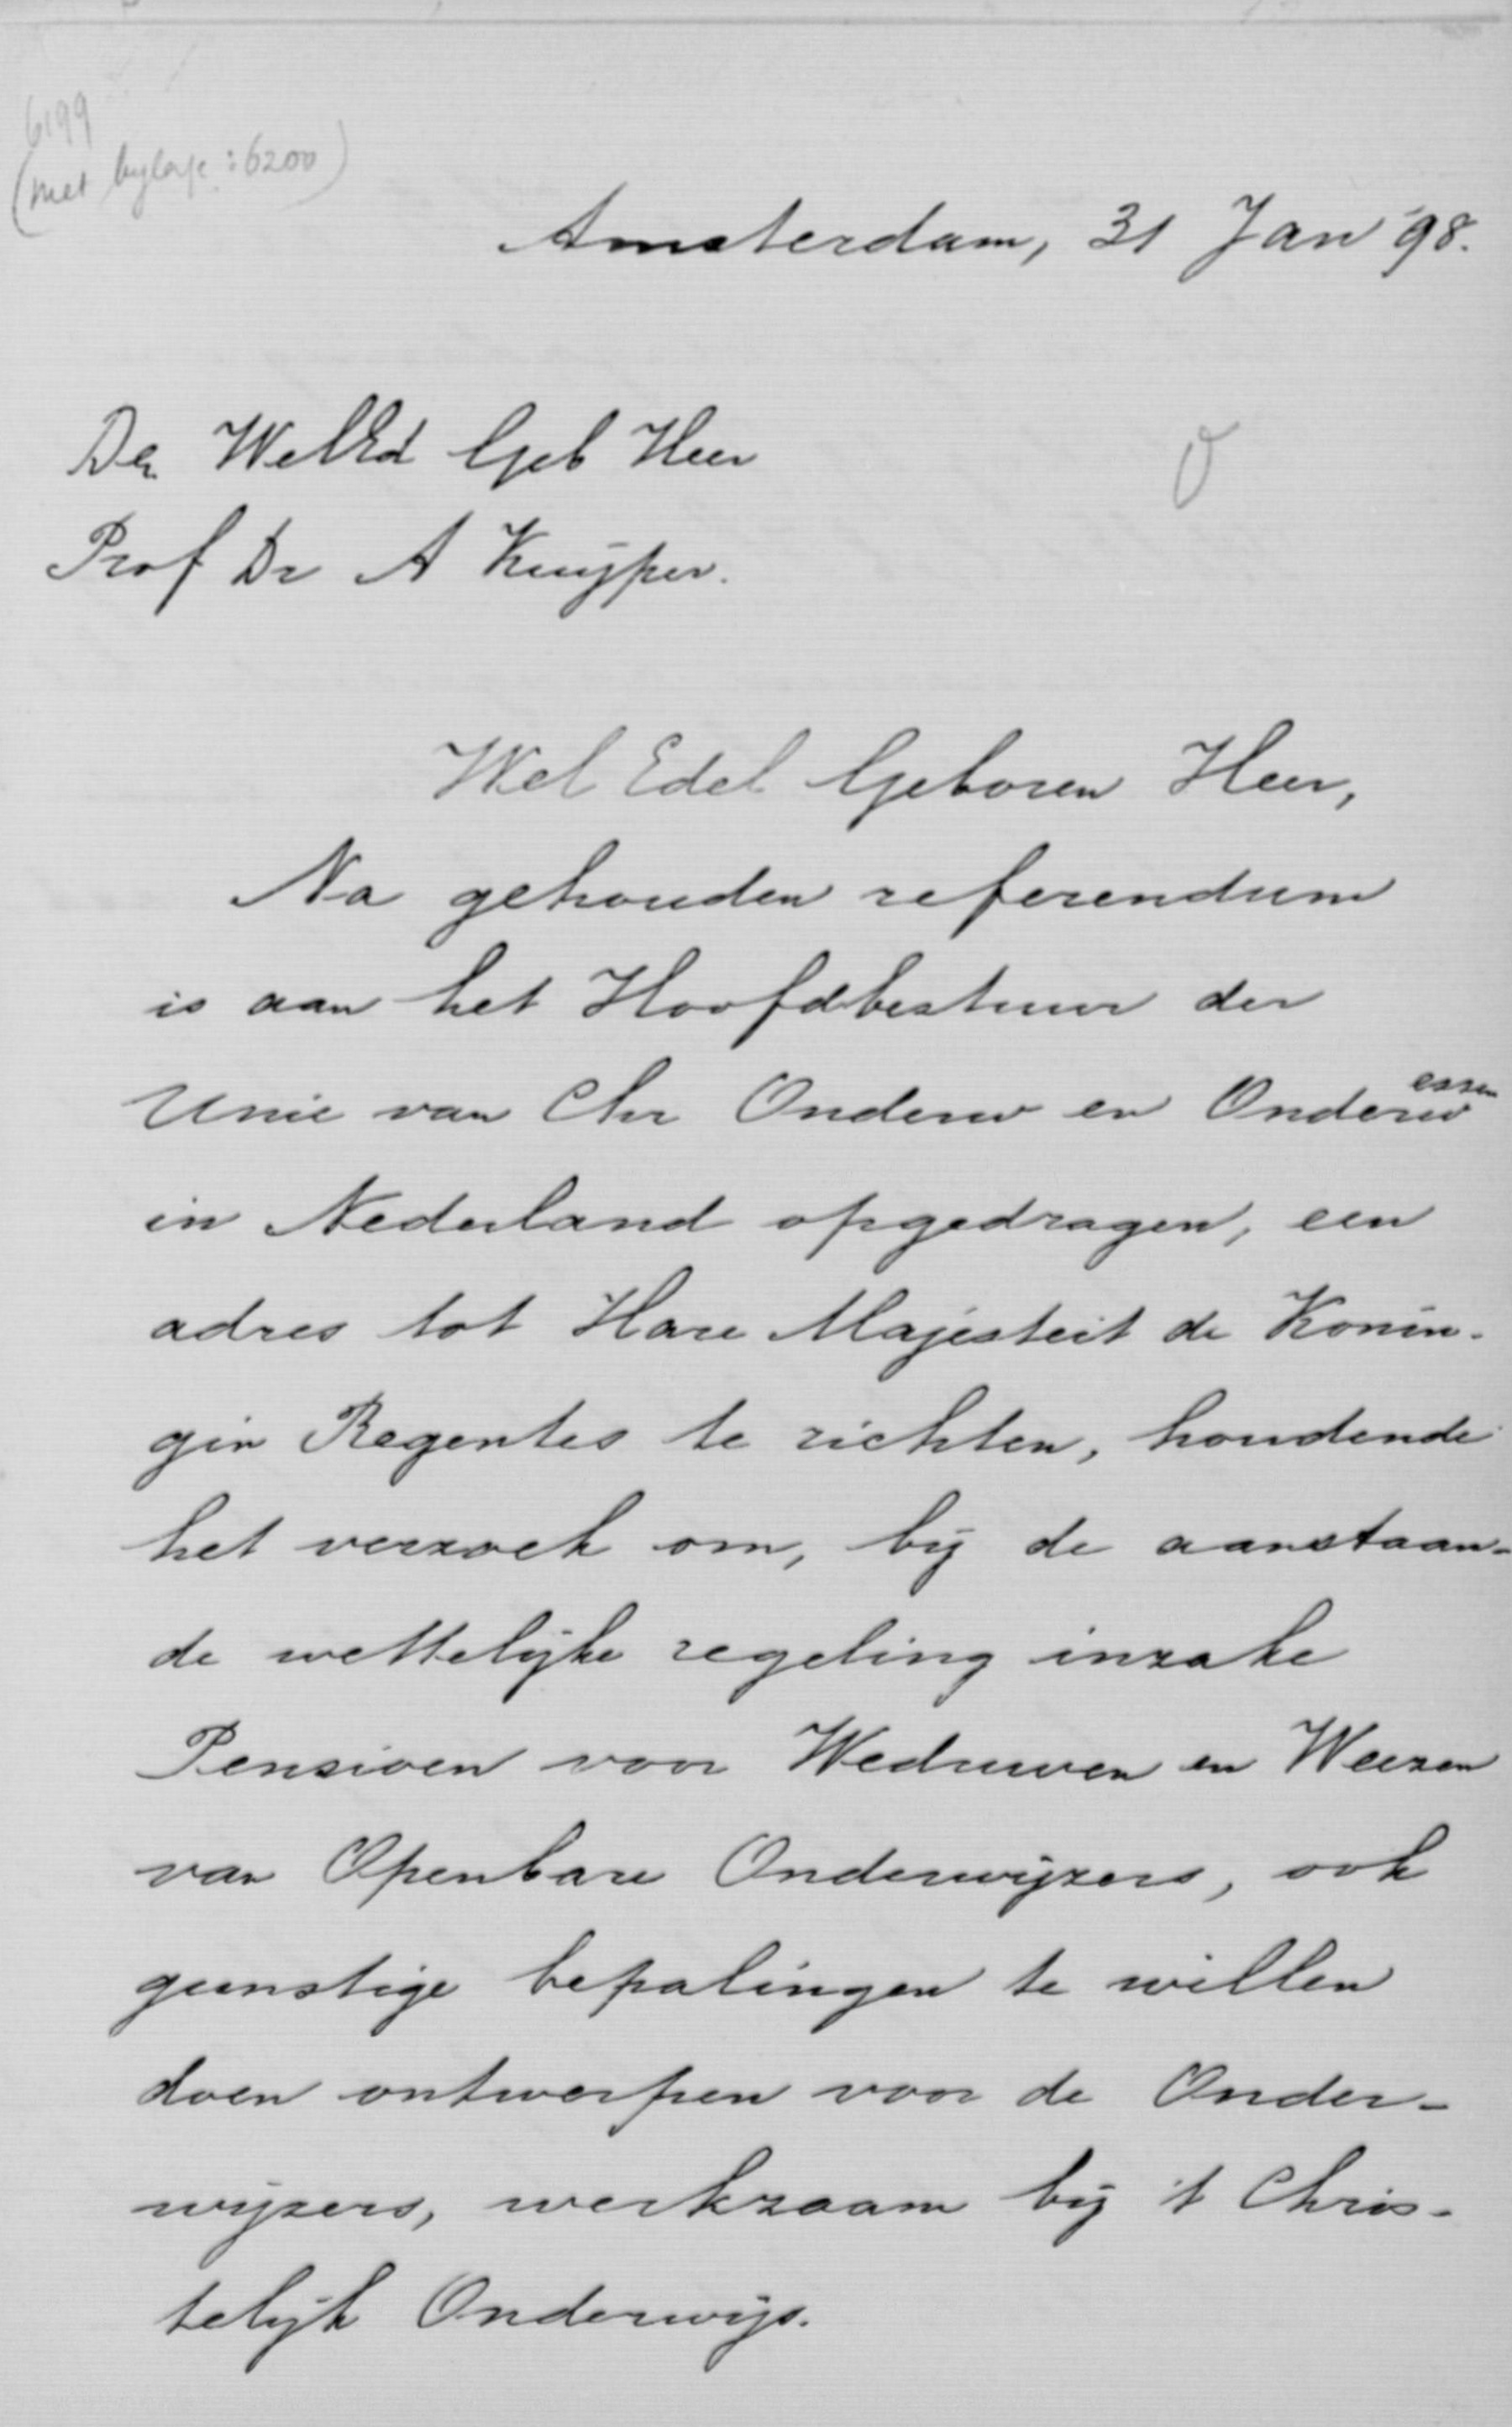 6199
(met bylage: 6200)
Amsterdam, 31 Jan '98.
Den WelEd Geb Heer
Prof Dr A Kuijper.
Wel Edel Geboren Heer,
Na gehouden referendum
is aan het Hoofdbestuur der
Unie van Chr Onderw en Onderwessen
in Nederland opgedragen, een
adres tot Hare Majesteit de Konin-
gin Regentes te richten, houdende
het verzoek om, bij de aanstaan-
de wettelijke regeling inzake
Pensioen voor Weduwen en Weezen
van Openbare Onderwijzers, ook
gunstige bepalingen te willen
doen ontwerpen voor de Onder-
wijzers, werkzaam bij 't Chris-
telijk Onderwijs.